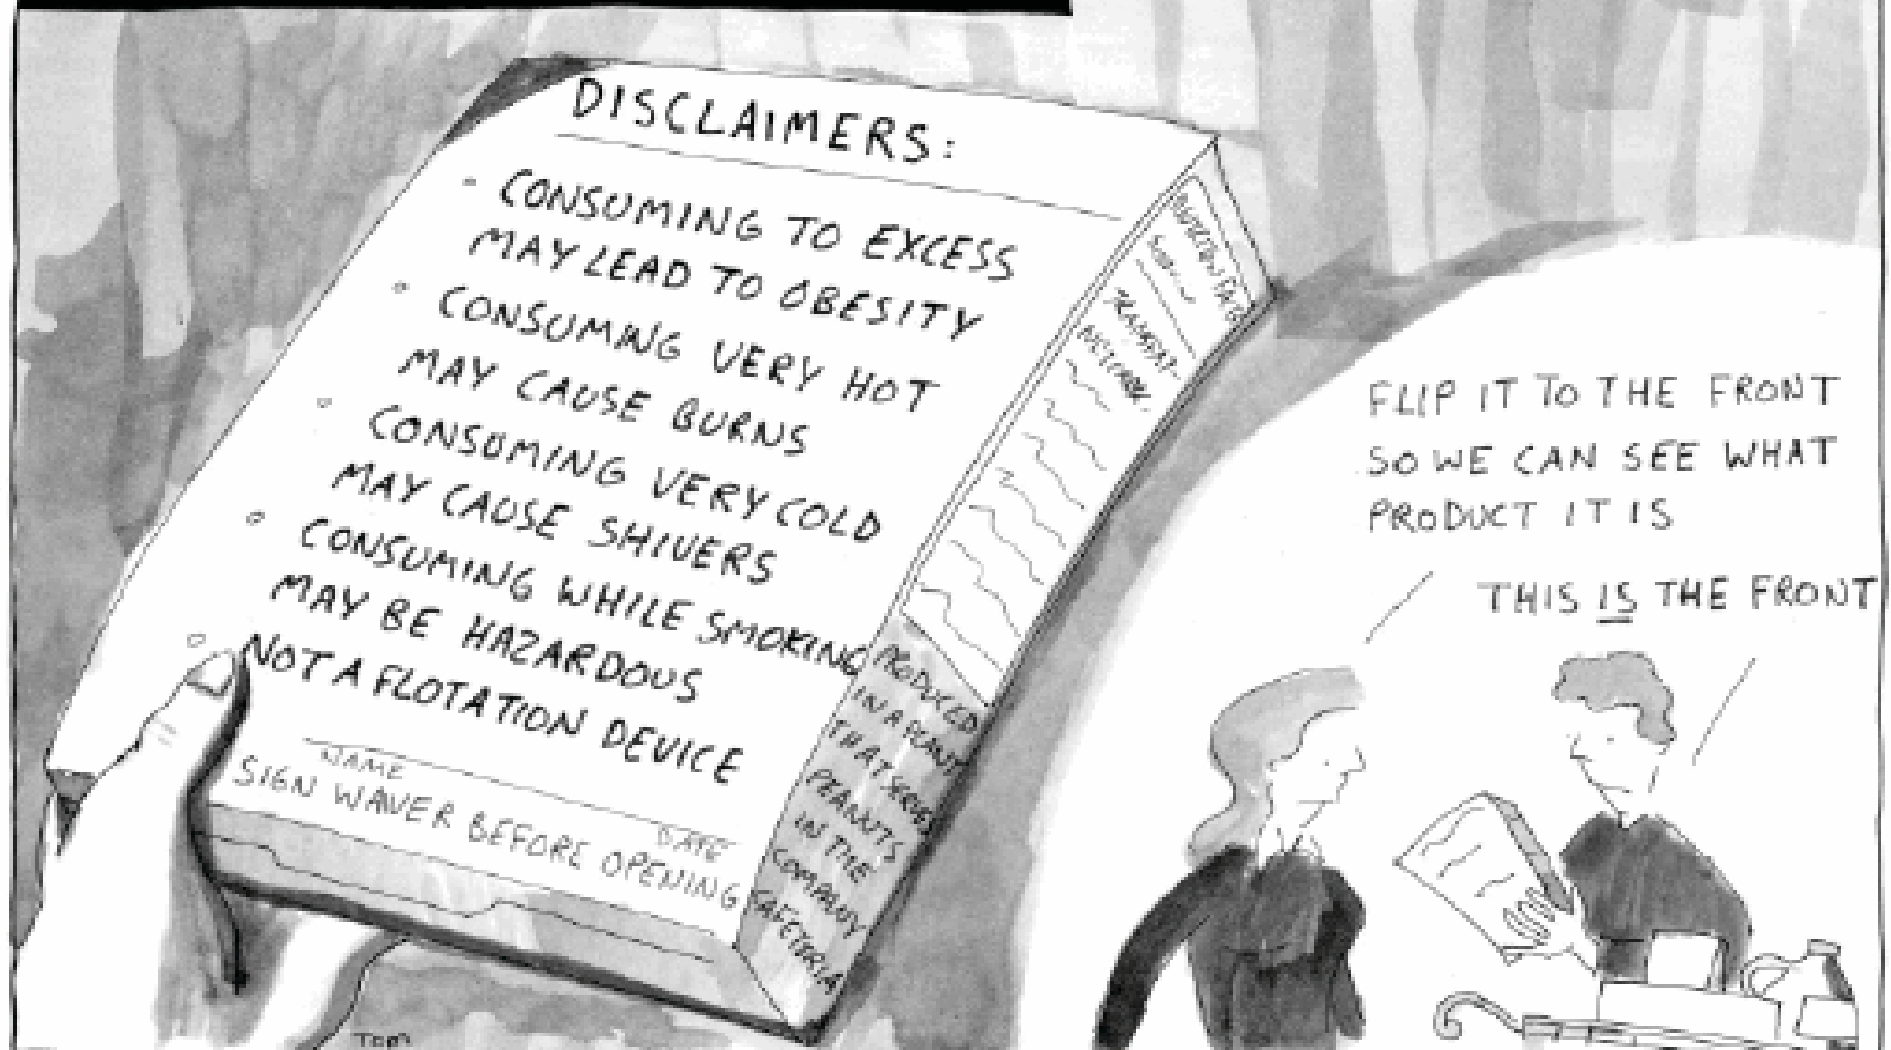 DISCLAIMERS:
CONSUMING TO EXCESS
MAY LEAD TO OBESITY
CONSUMING VERY HOT
MAY CAUSE BURNS
CONSUMING VERY COLD
MAY CAUSE SHIVERS
CONSUMING WHILE SMOKING
MAY BE HAZARDOUS
NOT A FLOTATION DEVICE
NAME
DATE
SIGN WAIVER BEFORE OPENING
PRODUCED
IN A PLANT
THAT SERVES
PEANUTS
IN THE
COMPANY
CAFETERIA
FLIP IT TO THE FRONT
SO WE CAN SEE WHAT
PRODUCT IT IS
THIS IS THE FRONT
TOM